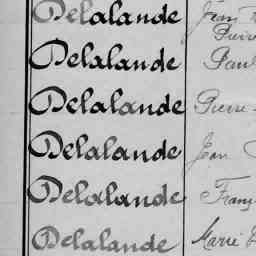 Delalande Jean
Pierre
Delalande Paul
Delalande Pierre
Delalande Jean
Delalande Franç
Delalande Marie